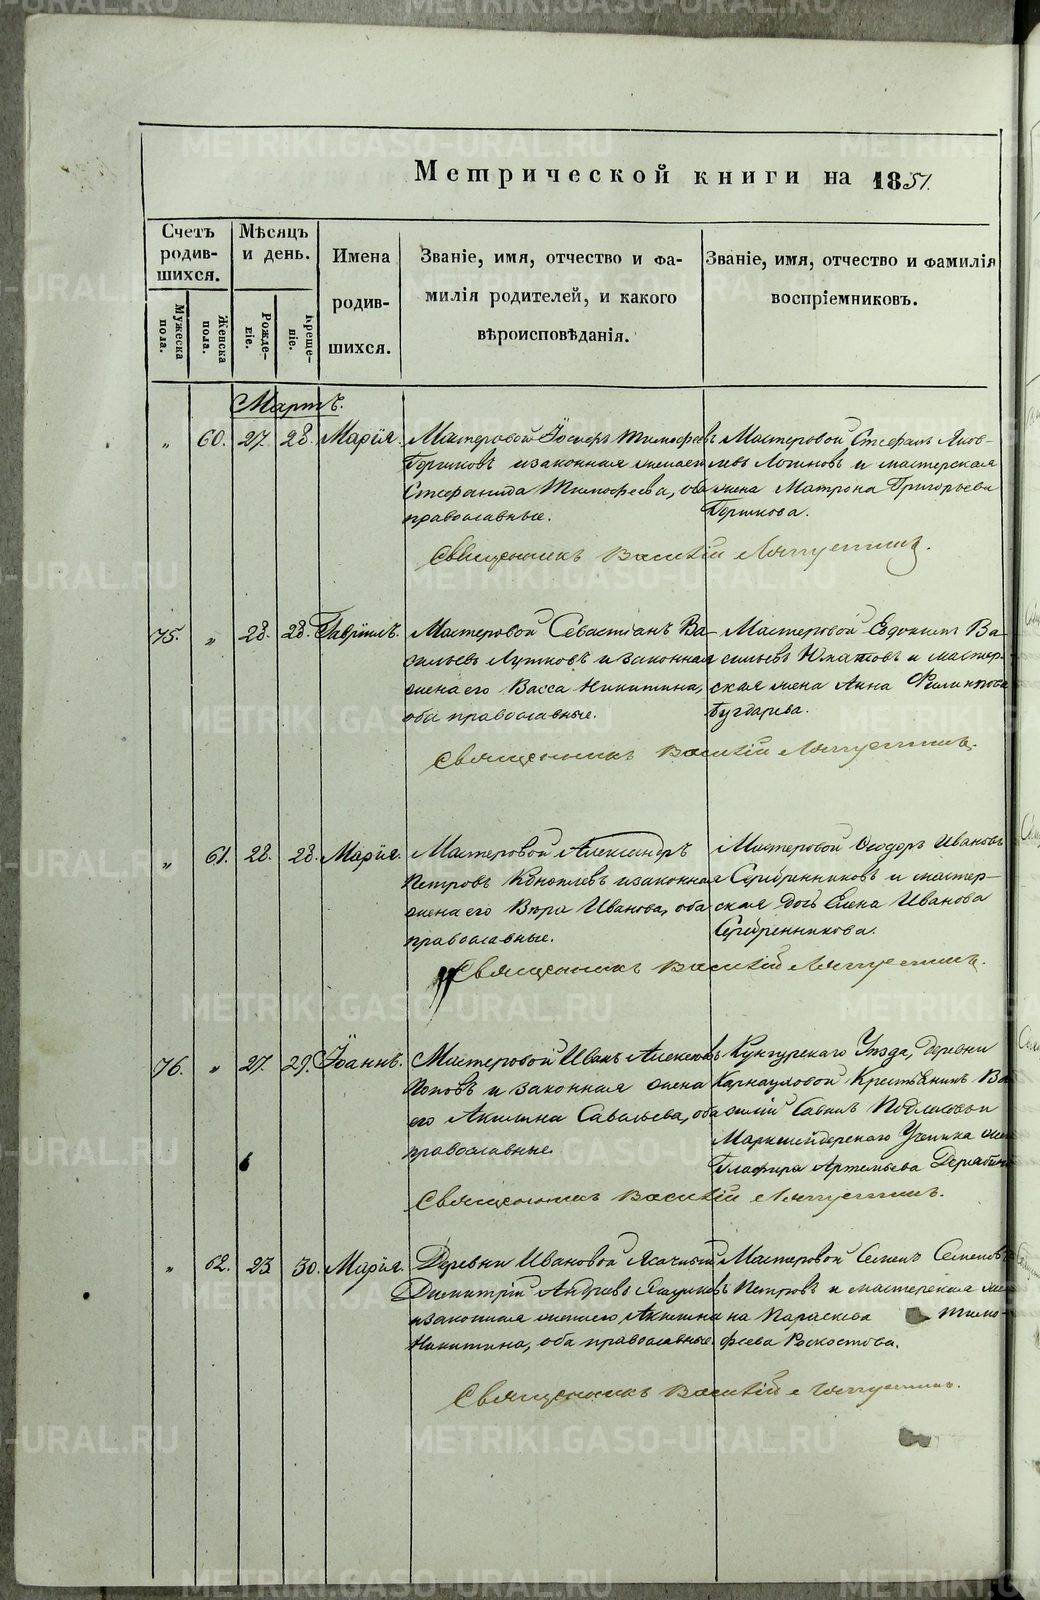 Метрической книги на 1851.
Счетъ родившихся.
Мѣсяцъ и день.
Мужеска пола.
Женска пола.
Рожденіе.
Крещеніе.
Имена родившихся.
Званіе, имя, отчество и фамилія родителей, и какого вѣроисповѣданія.
Званіе, имя, отчество и фамилія воспріемниковъ.
Мартъ.
„ 60. 27. 28. Марія.
Мастеровой Іосифъ Тимофеевъ
Горшковъ и законная жена его
Стефанида Тимофеева, оба
православные.
Мастеровой Стефанъ Яков-
левъ Логиновъ и мастерская
жена Матрона Григорьева
Горшкова.
Священникъ Василій
75. „ 28. 28. Гавріилъ.
Мастеровой Севастіанъ Ва-
сильевъ и законная
жена его Васса Никитина,
оба православные.
Мастеровой Евдокимъ Ва-
сильевъ Юматовъ и мастер-
ская жена Анна Филиппова
Священникъ Василій
„ 61. 28. 28. Марія.
Мастеровой Александръ
Петровъ Коноплевъ и законная
жена его Вѣра Иванова, оба
православные.
Мастеровой Ѳеодоръ Ивановъ
Серебренниковъ и мастер-
ская дочь Елена Иванова
Серебренникова.
Священникъ Василій
76. „ 27. 29. Іоаннъ.
Мастеровой Иванъ Алексеевъ
Поповъ и законная жена
его Акилина Савельева, оба
православные.
Кунгурскаго Уѣзда, деревни
Карнауховой Крестьянинъ Ва-
силій Савинъ и
Маркшейдерскаго Ученика жена
Глафира Артемьева
Священникъ Василій
„ 62. 23. 30. Марія.
Деревни Ивановой Ясачный
Димитрій Андреевъ
и законная жена его Акилина
Никитина, оба православные.
Мастеровой Семенъ Семеновъ
Петровъ и мастерская же-
на Параскева Тимо-
феева
Священникъ Василій
METRIKI.GASO-URAL.RU